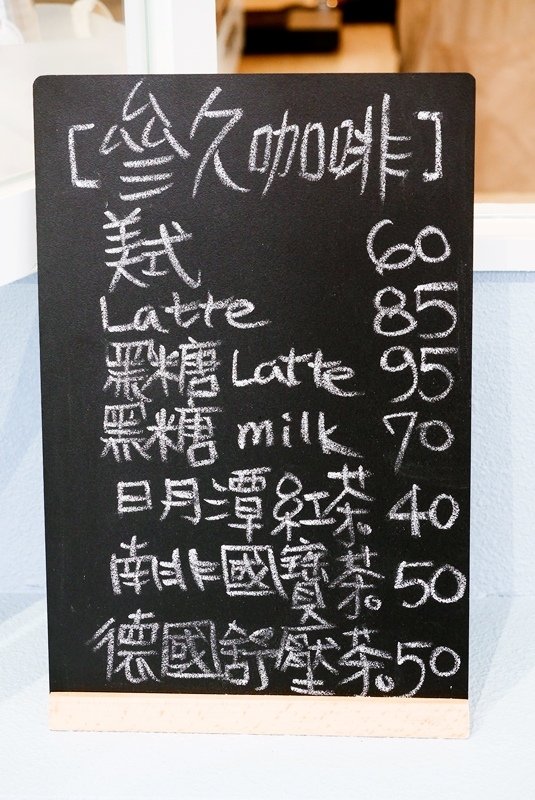 [參久咖啡]
美式 60
Latte 85
黑糖 Latte 95
黑糖 milk 70
日月潭紅茶。 40
南非國寶茶。 50
德國舒壓茶。 50